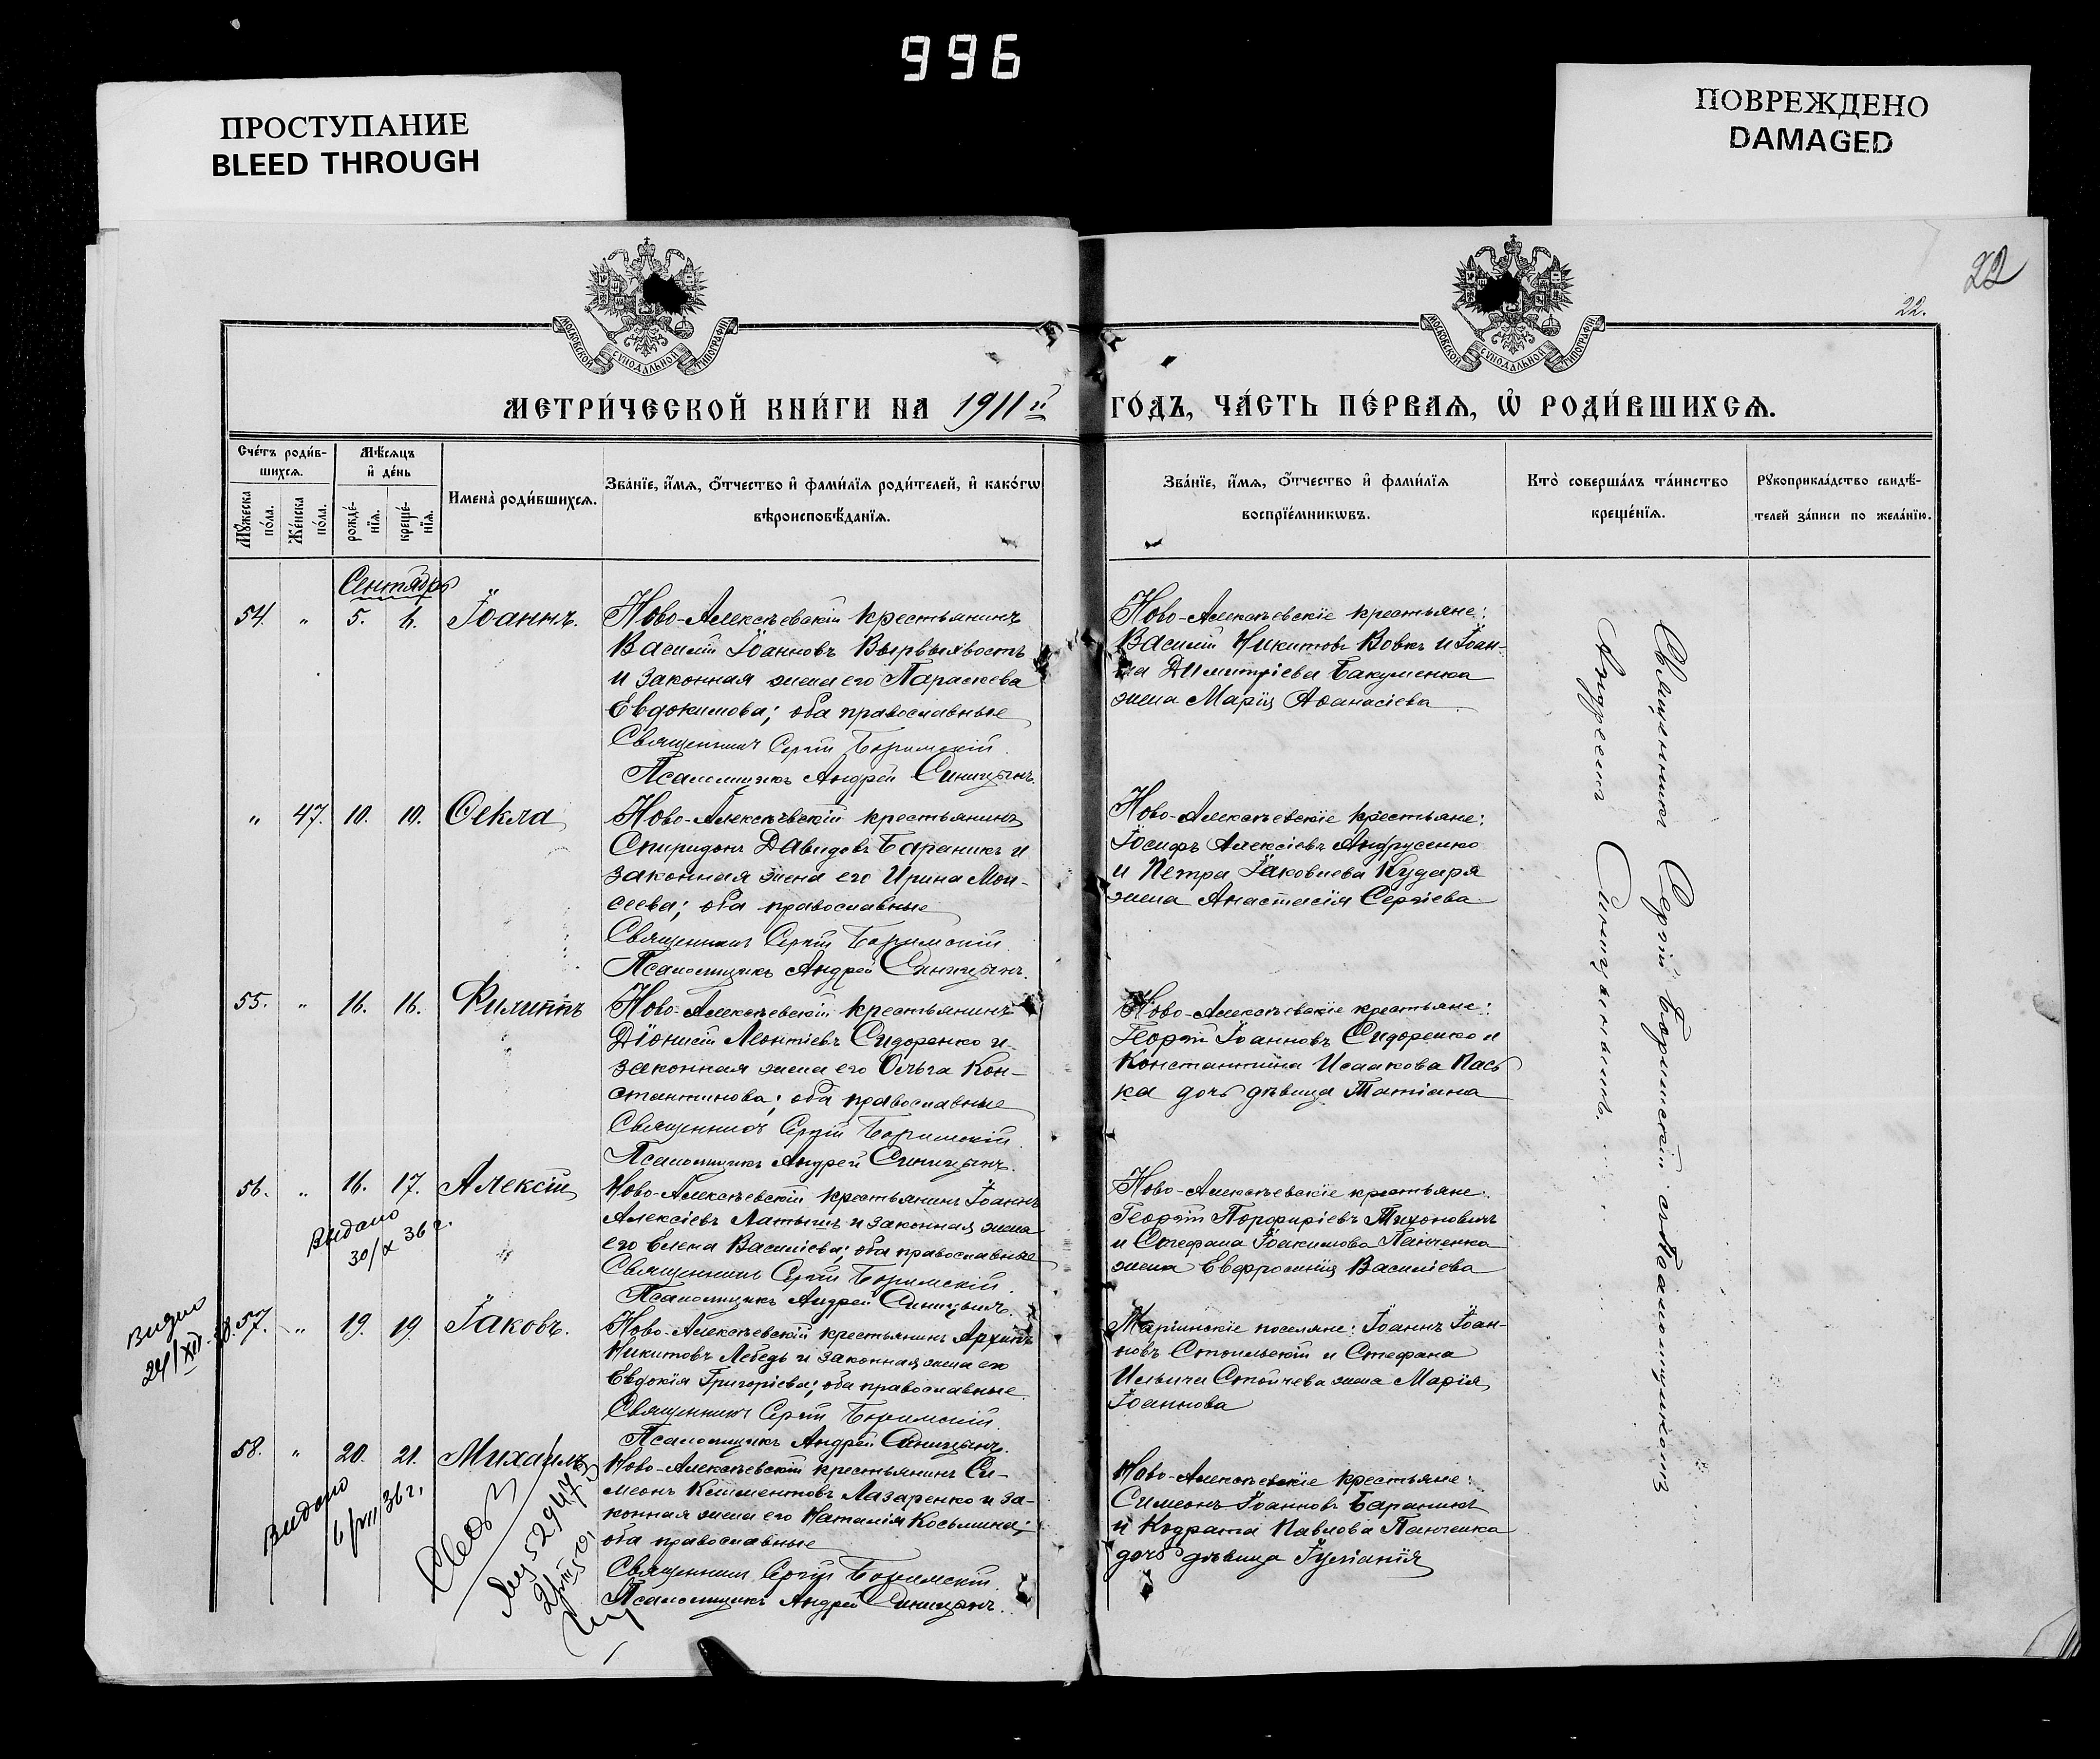 996
ПРОСТУПАНИЕ
BLEED THROUGH
ПОВРЕЖДЕНО
DAMAGED
22
22.
МОСКОВСКОЙ СѴНОДАЛЬНОЙ ТИПОГРАФІИ
МОСКОВСКОЙ СѴНОДАЛЬНОЙ ТИПОГРАФІИ
МЕТРИ́ЧЕСКОЙ КНИ́ГИ НА 1911й ГО́ДЪ, ЧА́СТЬ ПЕ́РВАѦ, Ѡ҆ РОДИ́ВШИХСѦ.
Сче́тъ роди́в-
шихсѧ.
Мꙋ́жеска по́ла.
Же́нска по́ла.
Мѣ́сѧцъ
и҆ де́нь
рожде́-
нїѧ.
креще́-
нїѧ.
Имена̀ роди́вшихсѧ.
Зва́нїе, и҆́мѧ, ѻ҆́тчество и҆ фами́лїѧ роди́телей, и҆ како́гѡ
вѣроисповѣ́данїѧ.
Зва́нїе, и҆́мѧ, ѻ҆́тчество и҆ фами́лїѧ
воспрїе́мникѡвъ.
Кто̀ соверша́лъ та́инство
креще́нїѧ.
Рꙋкоприкла́дство свидѣ́-
телей за́писи по жела́нїю.
Сентябрь
54. " 5. 6. Іоаннъ.
Ново-Алексѣевскій крестьянинъ
Василій Іоанновъ Вырвыхвостъ
и законная жена его Параскева
Евдокимова; оба православные
Священникъ Сергій Боримскій
Псаломщикъ Андрей Синицынъ.
Ново-Алексѣевскіе крестьяне:
Василій Никитовъ Вовкъ и Іоан-
на Димитріева Бакуменка
жена Марія Аѳанасіева
" 47. 10. 10. Ѳекла
Ново-Алексѣевскій крестьянинъ
Спиридонъ Давидовъ Бараникъ и
законная жена его Ирина Мои-
сеева; оба православные
Священникъ Сергій Боримскій
Псаломщикъ Андрей Синицынъ.
Ново-Алексѣевскіе крестьяне:
Іосифъ Алексіевъ Андрусенко
и Петра Іаковлева Кударя
жена Анастасія Сергіева
55. " 16. 16. Филиппъ
Ново-Алексѣевскій крестьянинъ
Діонисій Леонтіевъ Сидоренко и
законная жена его Ольга Кон-
стантинова; оба православные
Священникъ Сергій Боримскій
Псаломщикъ Андрей Синицынъ.
Ново-Алексѣевскіе крестьяне:
Георгій Іоанновъ Сидоренко и
Константина Исаакова Пась
ка дочь дѣвица Татіана
56. " 16. 17. Алексій
Видано
30/X 36 г.
Ново-Алексѣевскій крестьянинъ Іоаннъ
Алексіевъ Латышъ и законная жена
его Елена Василіева; оба православные
Священникъ Сергій Боримскій
Псаломщикъ Андрей Синицынъ.
Ново-Алексѣевскіе крестьяне:
Георгій Порфиріевъ Тихоновичъ
и Стефана Іоакимова Панченка
жена Евфросинія Василіева
Видано
24/XII.38.
57. " 19. 19. Іаковъ.
Ново-Алексѣевскій крестьянинъ Архипъ
Никитовъ Лебедь и законная жена его
Евдокія Григоріева; оба православные
Священникъ Сергій Боримскій
Псаломщикъ Андрей Синицынъ.
Маріинскіе поселяне: Іоаннъ Іоан-
новъ Стоильскій и Стефана
Ильича Стойчева жена Марія
Іоаннова
58. " 20. 21. Михаилъ
Видано
6/VII 36 г.
Ново-Алексѣевскій крестьянинъ Си-
меонъ Климентовъ Лазаренко и за-
конная жена его Наталія Косьмина;
оба православные
Священникъ Сергій Боримскій
Псаломщикъ Андрей Синицынъ.
Ново-Алексѣевскіе крестьяне:
Симеонъ Іоанновъ Бараникъ
и Кодрата Павлова Панченка
дочь дѣвица Іуліанія
Священникъ Сергій Боримскій съ Псаломщикомъ
Андреемъ Синицынымъ.